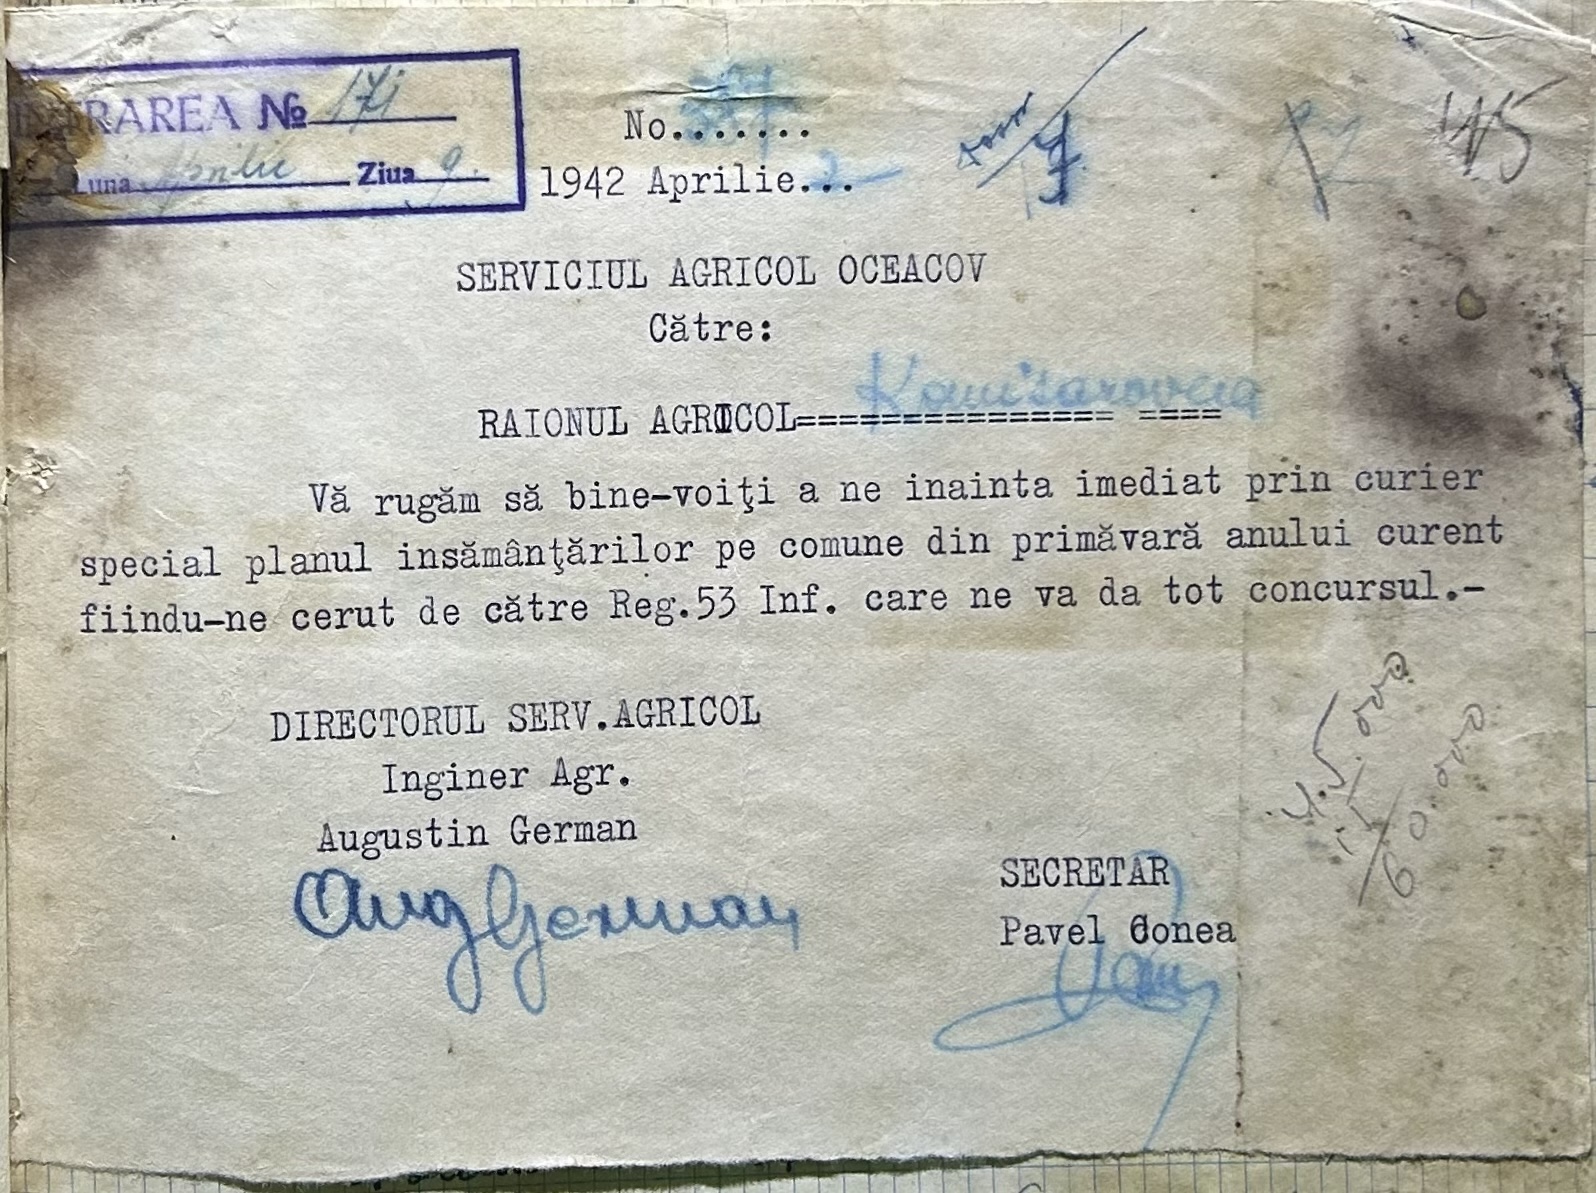 INTRAREA № 171
Luna Aprilie Ziua 9.
No.......
1942 Aprilie...
145
SERVICIUL AGRICOL OCEACOV
Către:
Komisarovca
RAIONUL AGRICOL=============== ====
Vă rugăm să bine-voiţi a ne inainta imediat prin curier
special planul insămânţărilor pe comune din primăvară anului curent
fiindu-ne cerut de către Reg.53 Inf. care ne va da tot concursul.-
DIRECTORUL SERV.AGRICOL
Inginer Agr.
Augustin German
Aug German
SECRETAR
Pavel Gonea
60.000